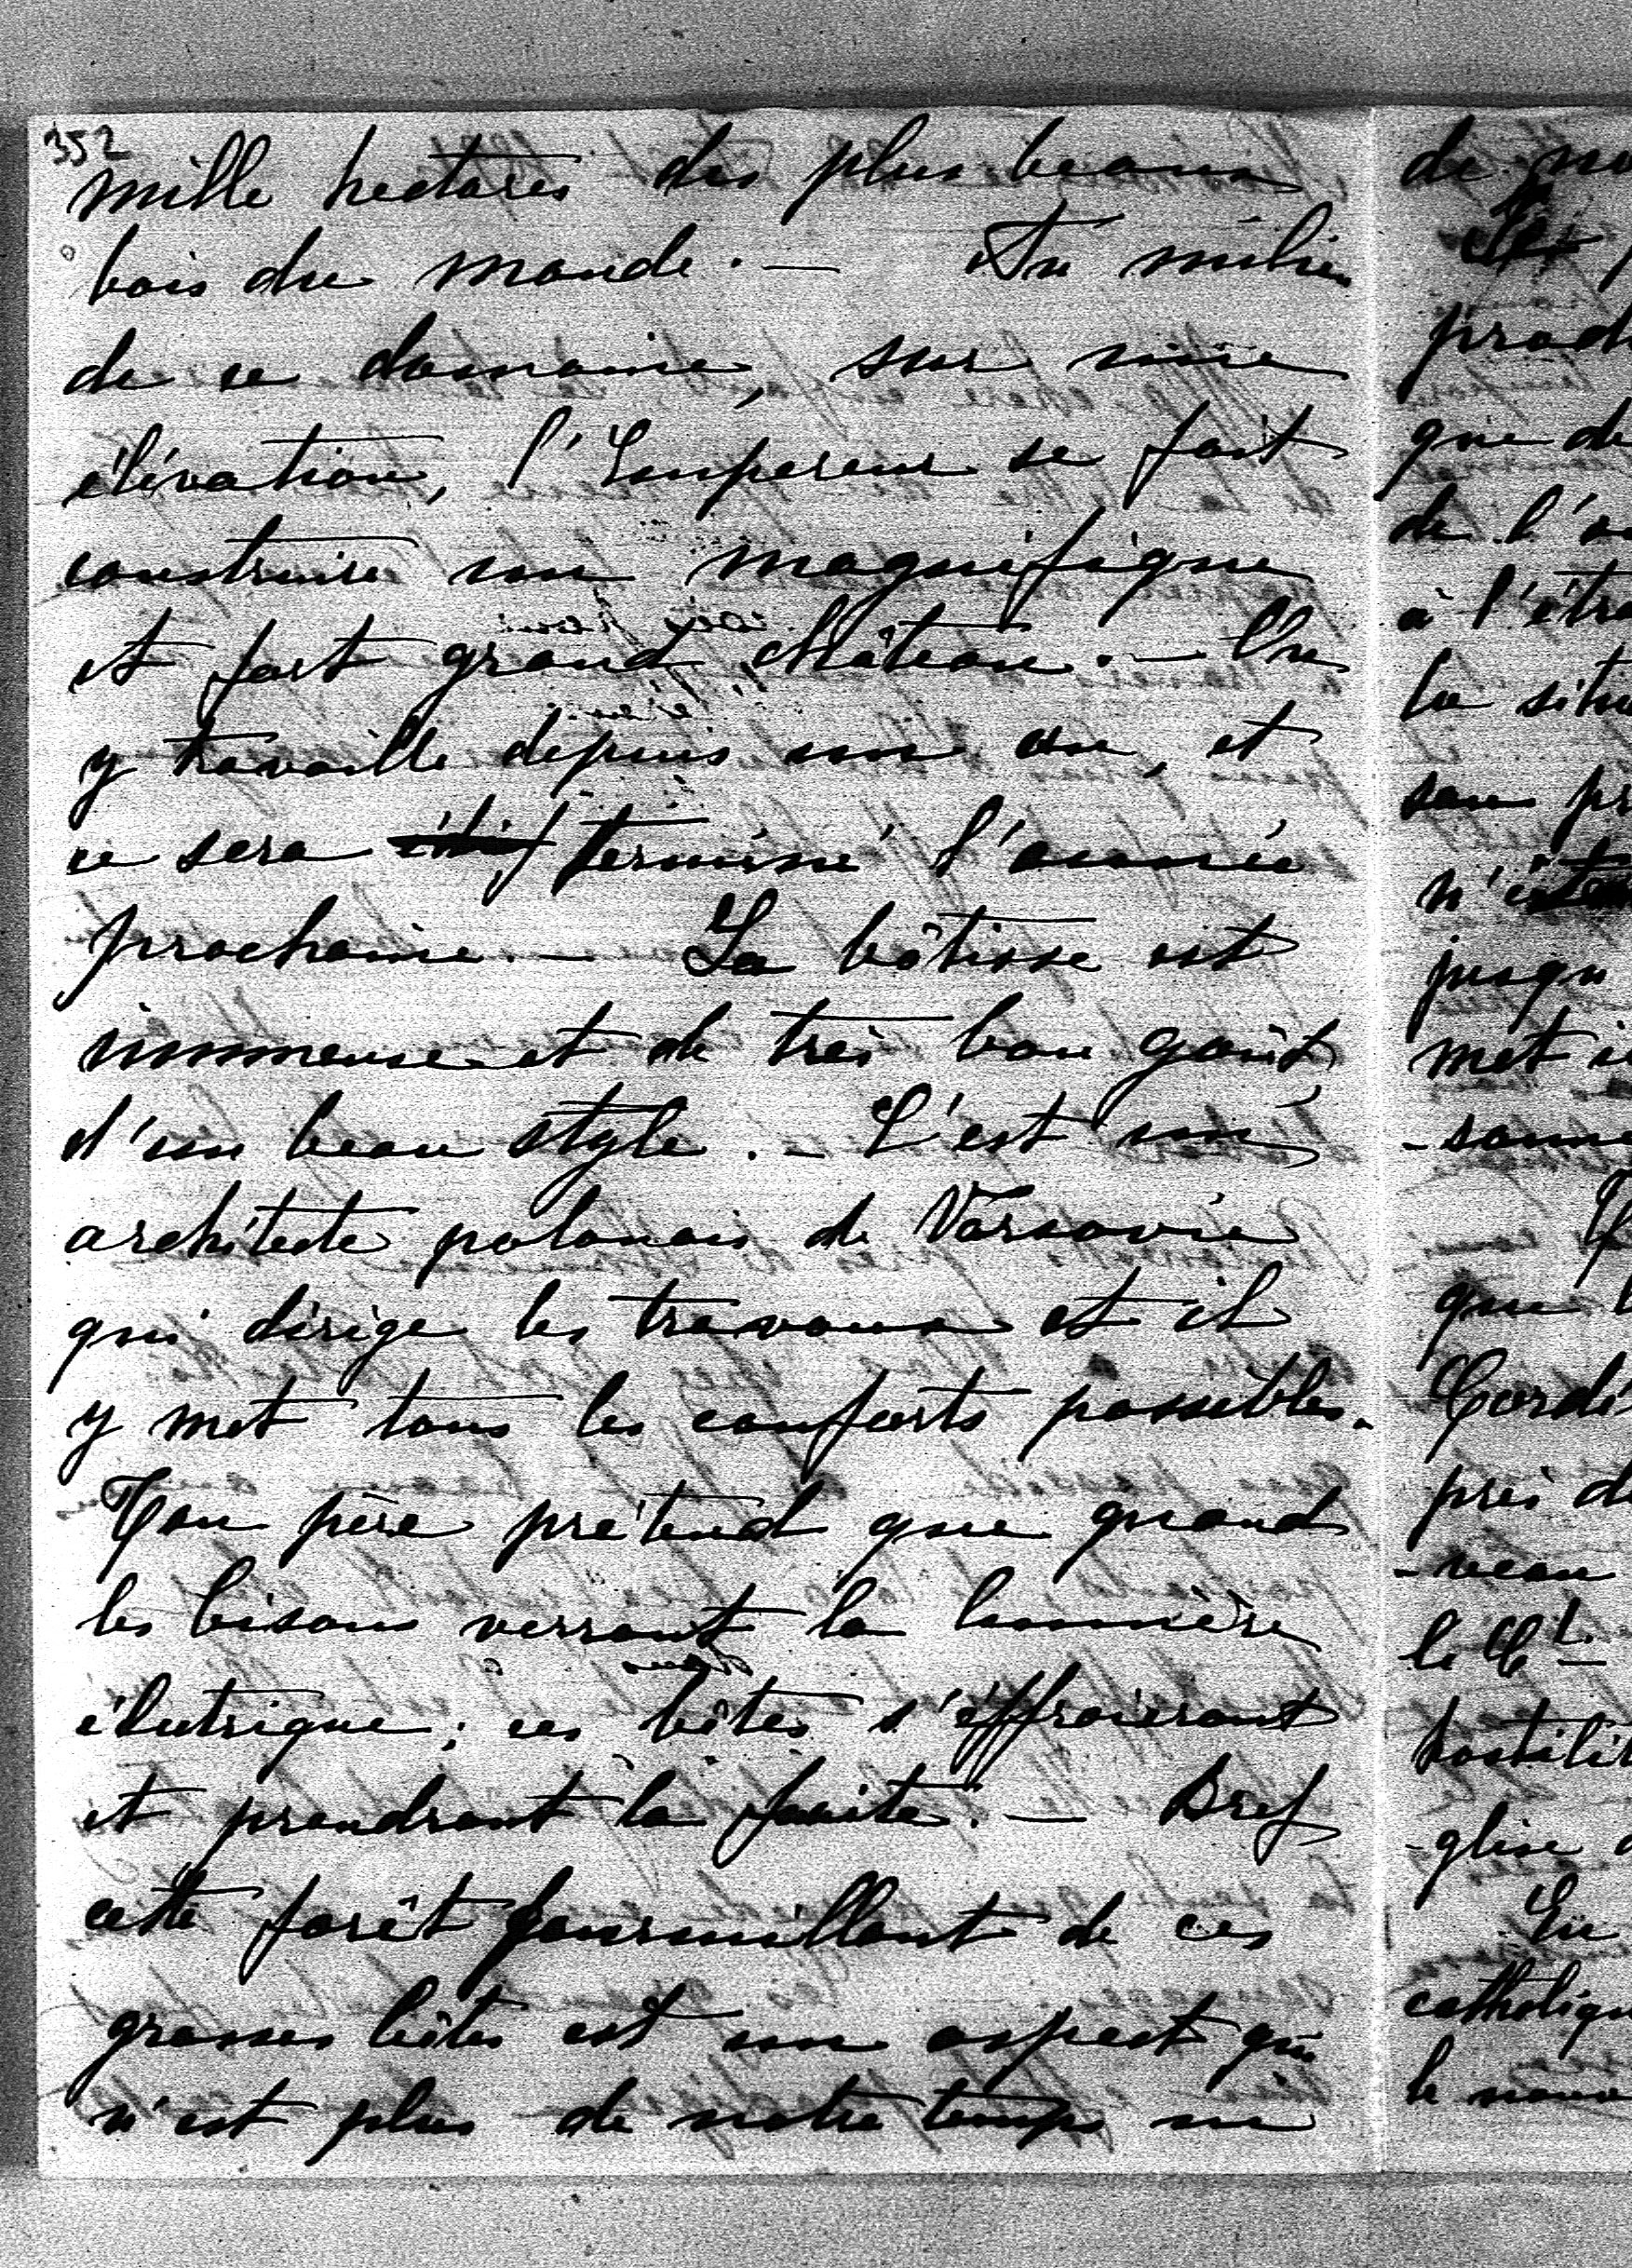 352
mille hectares des plus beaux
bois du monde. — Au milieu
de ce domaine, sur une
élévation, l'Empereur se fait
construire un magnifique
et fort grand château. — On
y travaille depuis un an, et
ce sera terminé l'année
prochaine. — La bâtisse est
immense et de très bon goût
d'un beau style. — C'est un
architecte polonais de Varsovie
qui dirige les travaux et il
y met tous les conforts possibles.
Ton père prétend que quand
les bisons verront la lumière
électrique, ces bêtes s'éffraieront
et prendront la fuite. — Bref
cette forêt fourmillant de ces
grosses bêtes est un aspect qui
n'est plus de notre temps ni
de
prod
que de
de l'
à l'étra
la situ
son pr
n'
jusqu
met
-sonne
que
près d
-veau
hostilit
-glise
En
catholiqu
le nouv